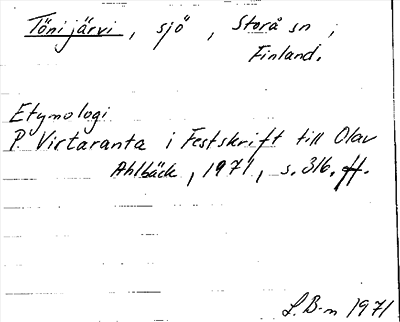 Tönijärvi, sjö, Storå sn,
Finland.
Etymologi
P. Virtaranta i Festskrift till Olav
Ahlbäck, 1971, s. 316. ff.
L. B-n 1971